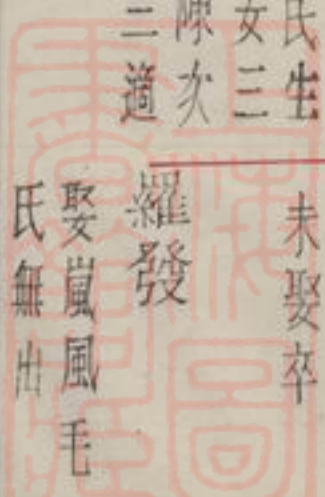 氏生
女三
陳次
二適
未娶卒
羅發
娶嵐風毛
氏無出